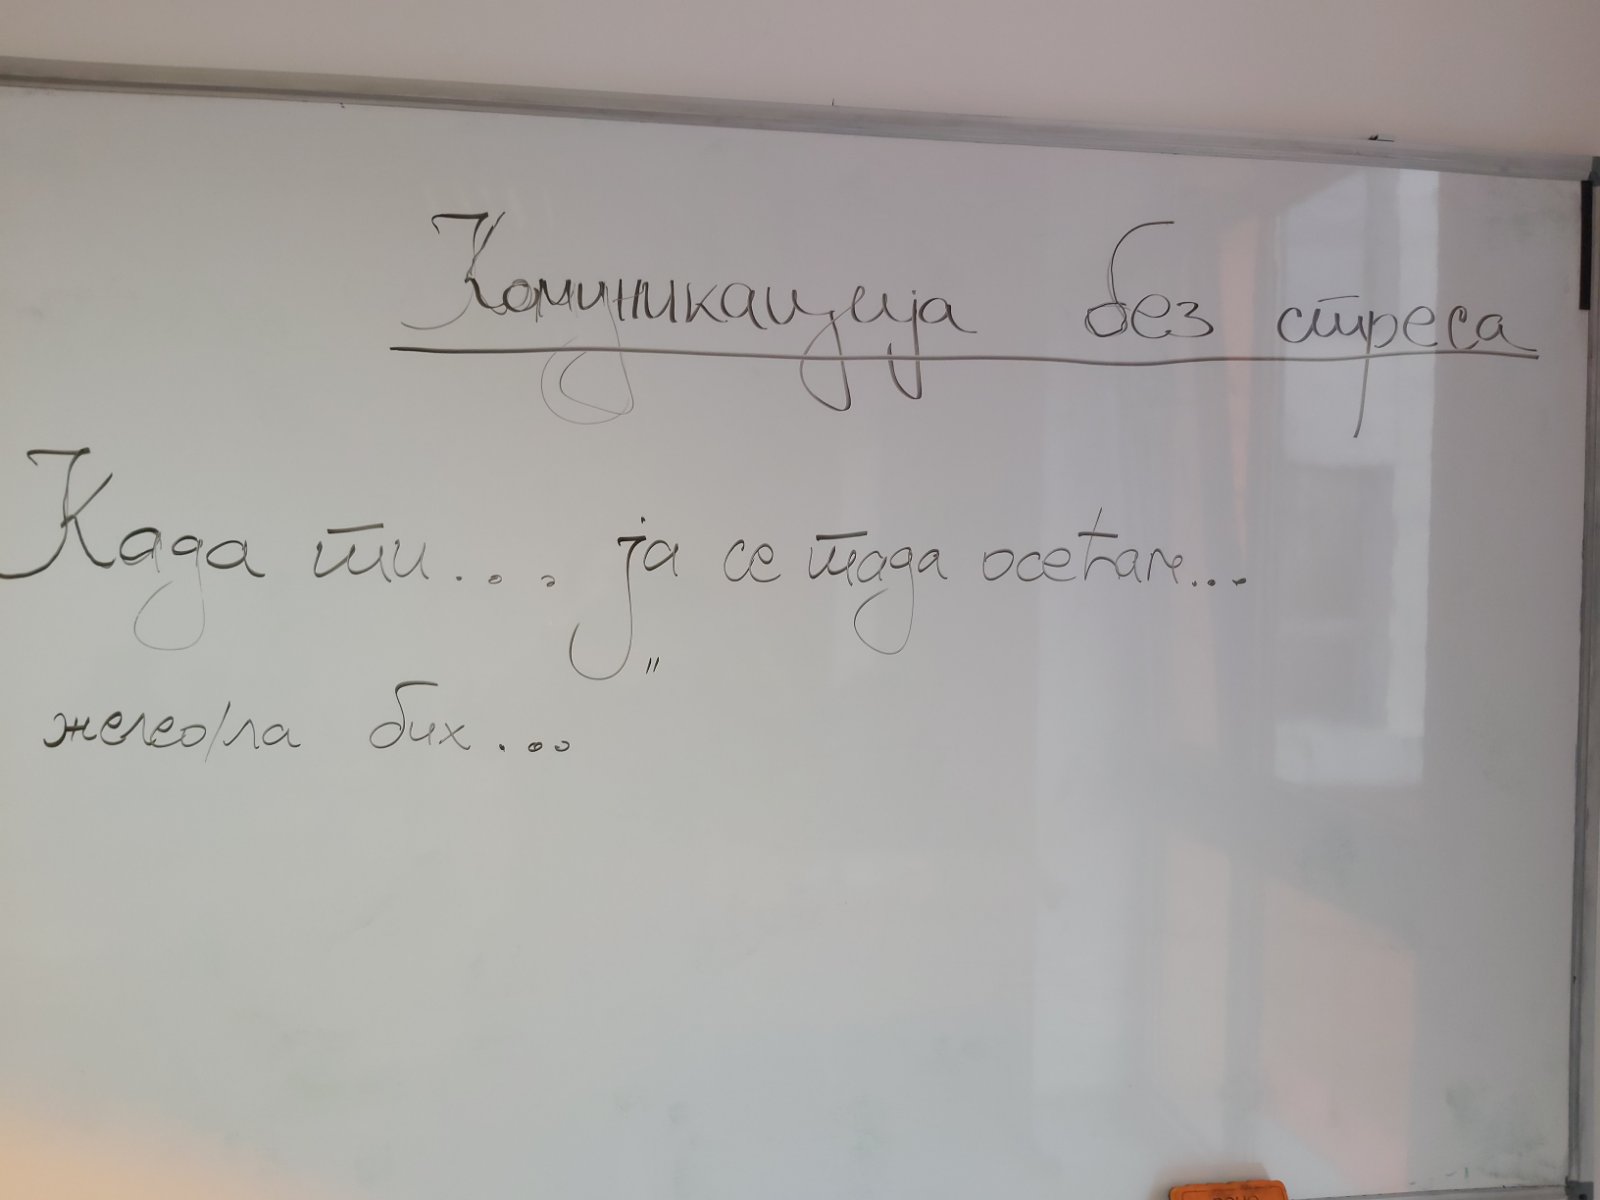 Комуникација без стреса
Када ти... ја се тада осећам...
"
желео/ла бих...